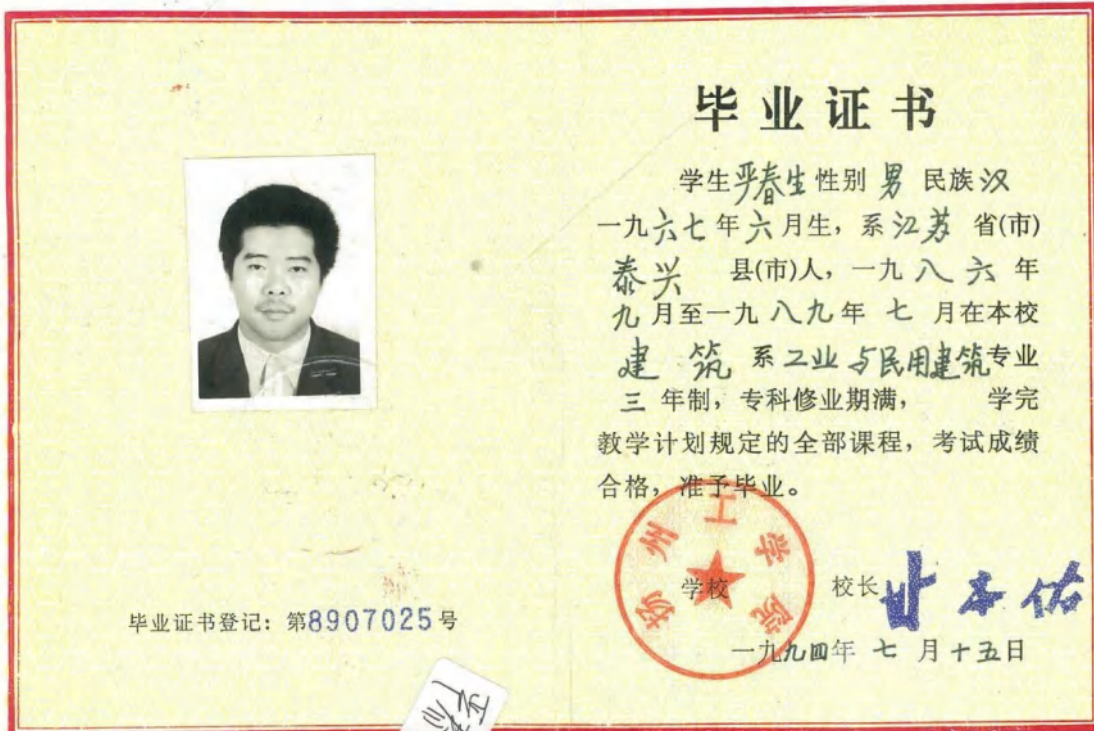 毕业证书
学生严春生性别男民族汉
一九六七年六月生，系江苏 省(市)
泰兴 县(市)人，一九八六年
九月至一九八九年七月在本校
建筑系工业与民用建筑专业
三年制，专科修业期满， 学完
教学计划规定的全部课程，考试成绩
合格，准予毕业。
扬州工学院
学校 校长
一九九四年七月十五日
毕业证书登记：第8907025号